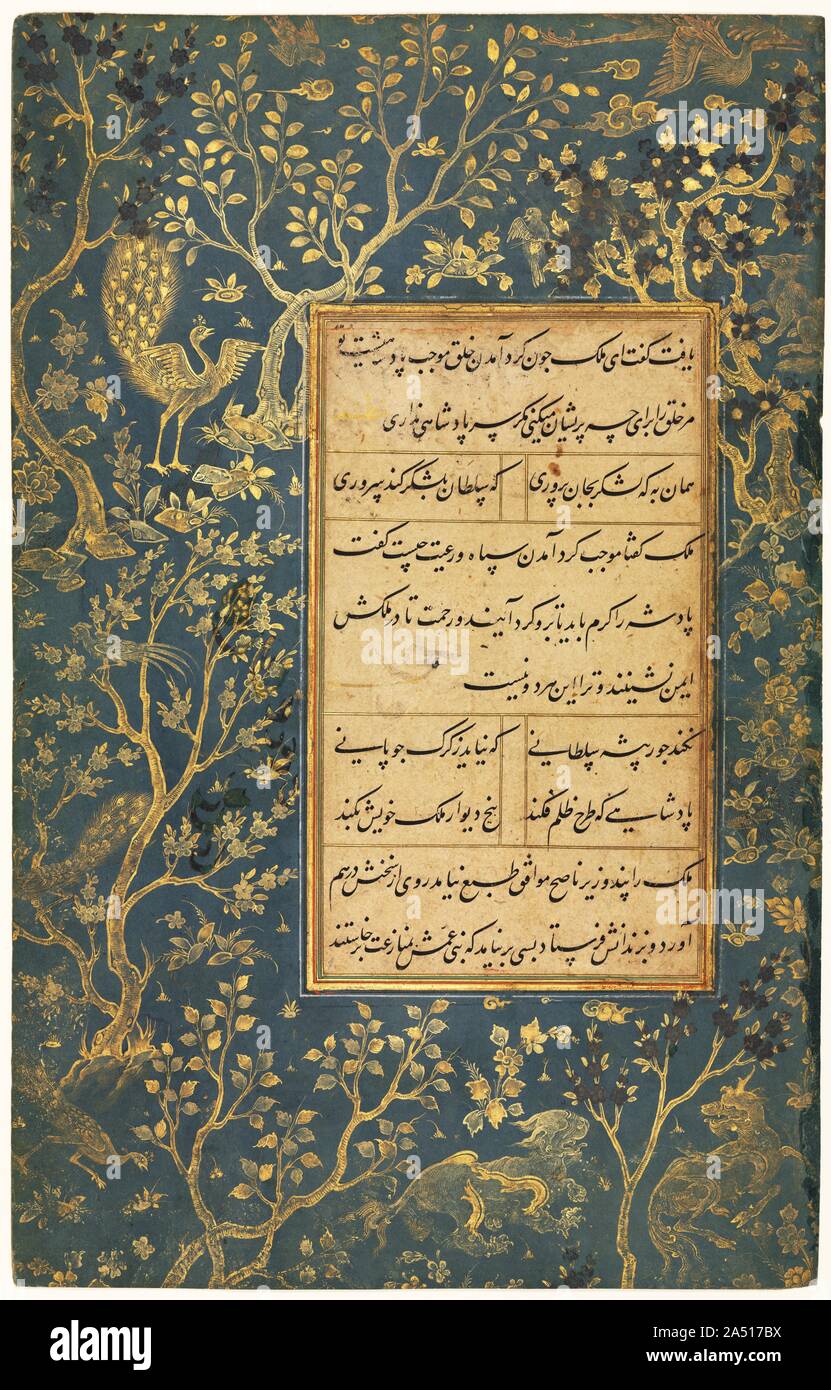 یافت گفت ای ملک چون گرد آمدن خلق موجب پادشهیست تو
مر خلق را برای چه پریشان میکنی مگر سر پادشاهی نداری
همان به که لشکر بجان پروری که سلطان بلشکر کند سروری
ملک گفتا موجب گرد آمدن سپاه و رعیت چیست گفت
پادشه را کرم باید تا برو گرد آیند و رحمت تا در ملکش
ایمن نشینند و ترا این هر دو نیست
نکند جور پیشه سلطانی که نیاید ز گرگ چوپانی
پادشاهی که طرح ظلم فکند بیخ دیوار ملک خویش بکند
ملک را پند وزیر ناصح موافق طبع نیامد روی از سخنش درهم
آورد و بزندانش فرستاد بسی برنیامد که بنی عمش بمنازعت خاستند
alamy
Image ID: 2A517BX
www.alamy.com